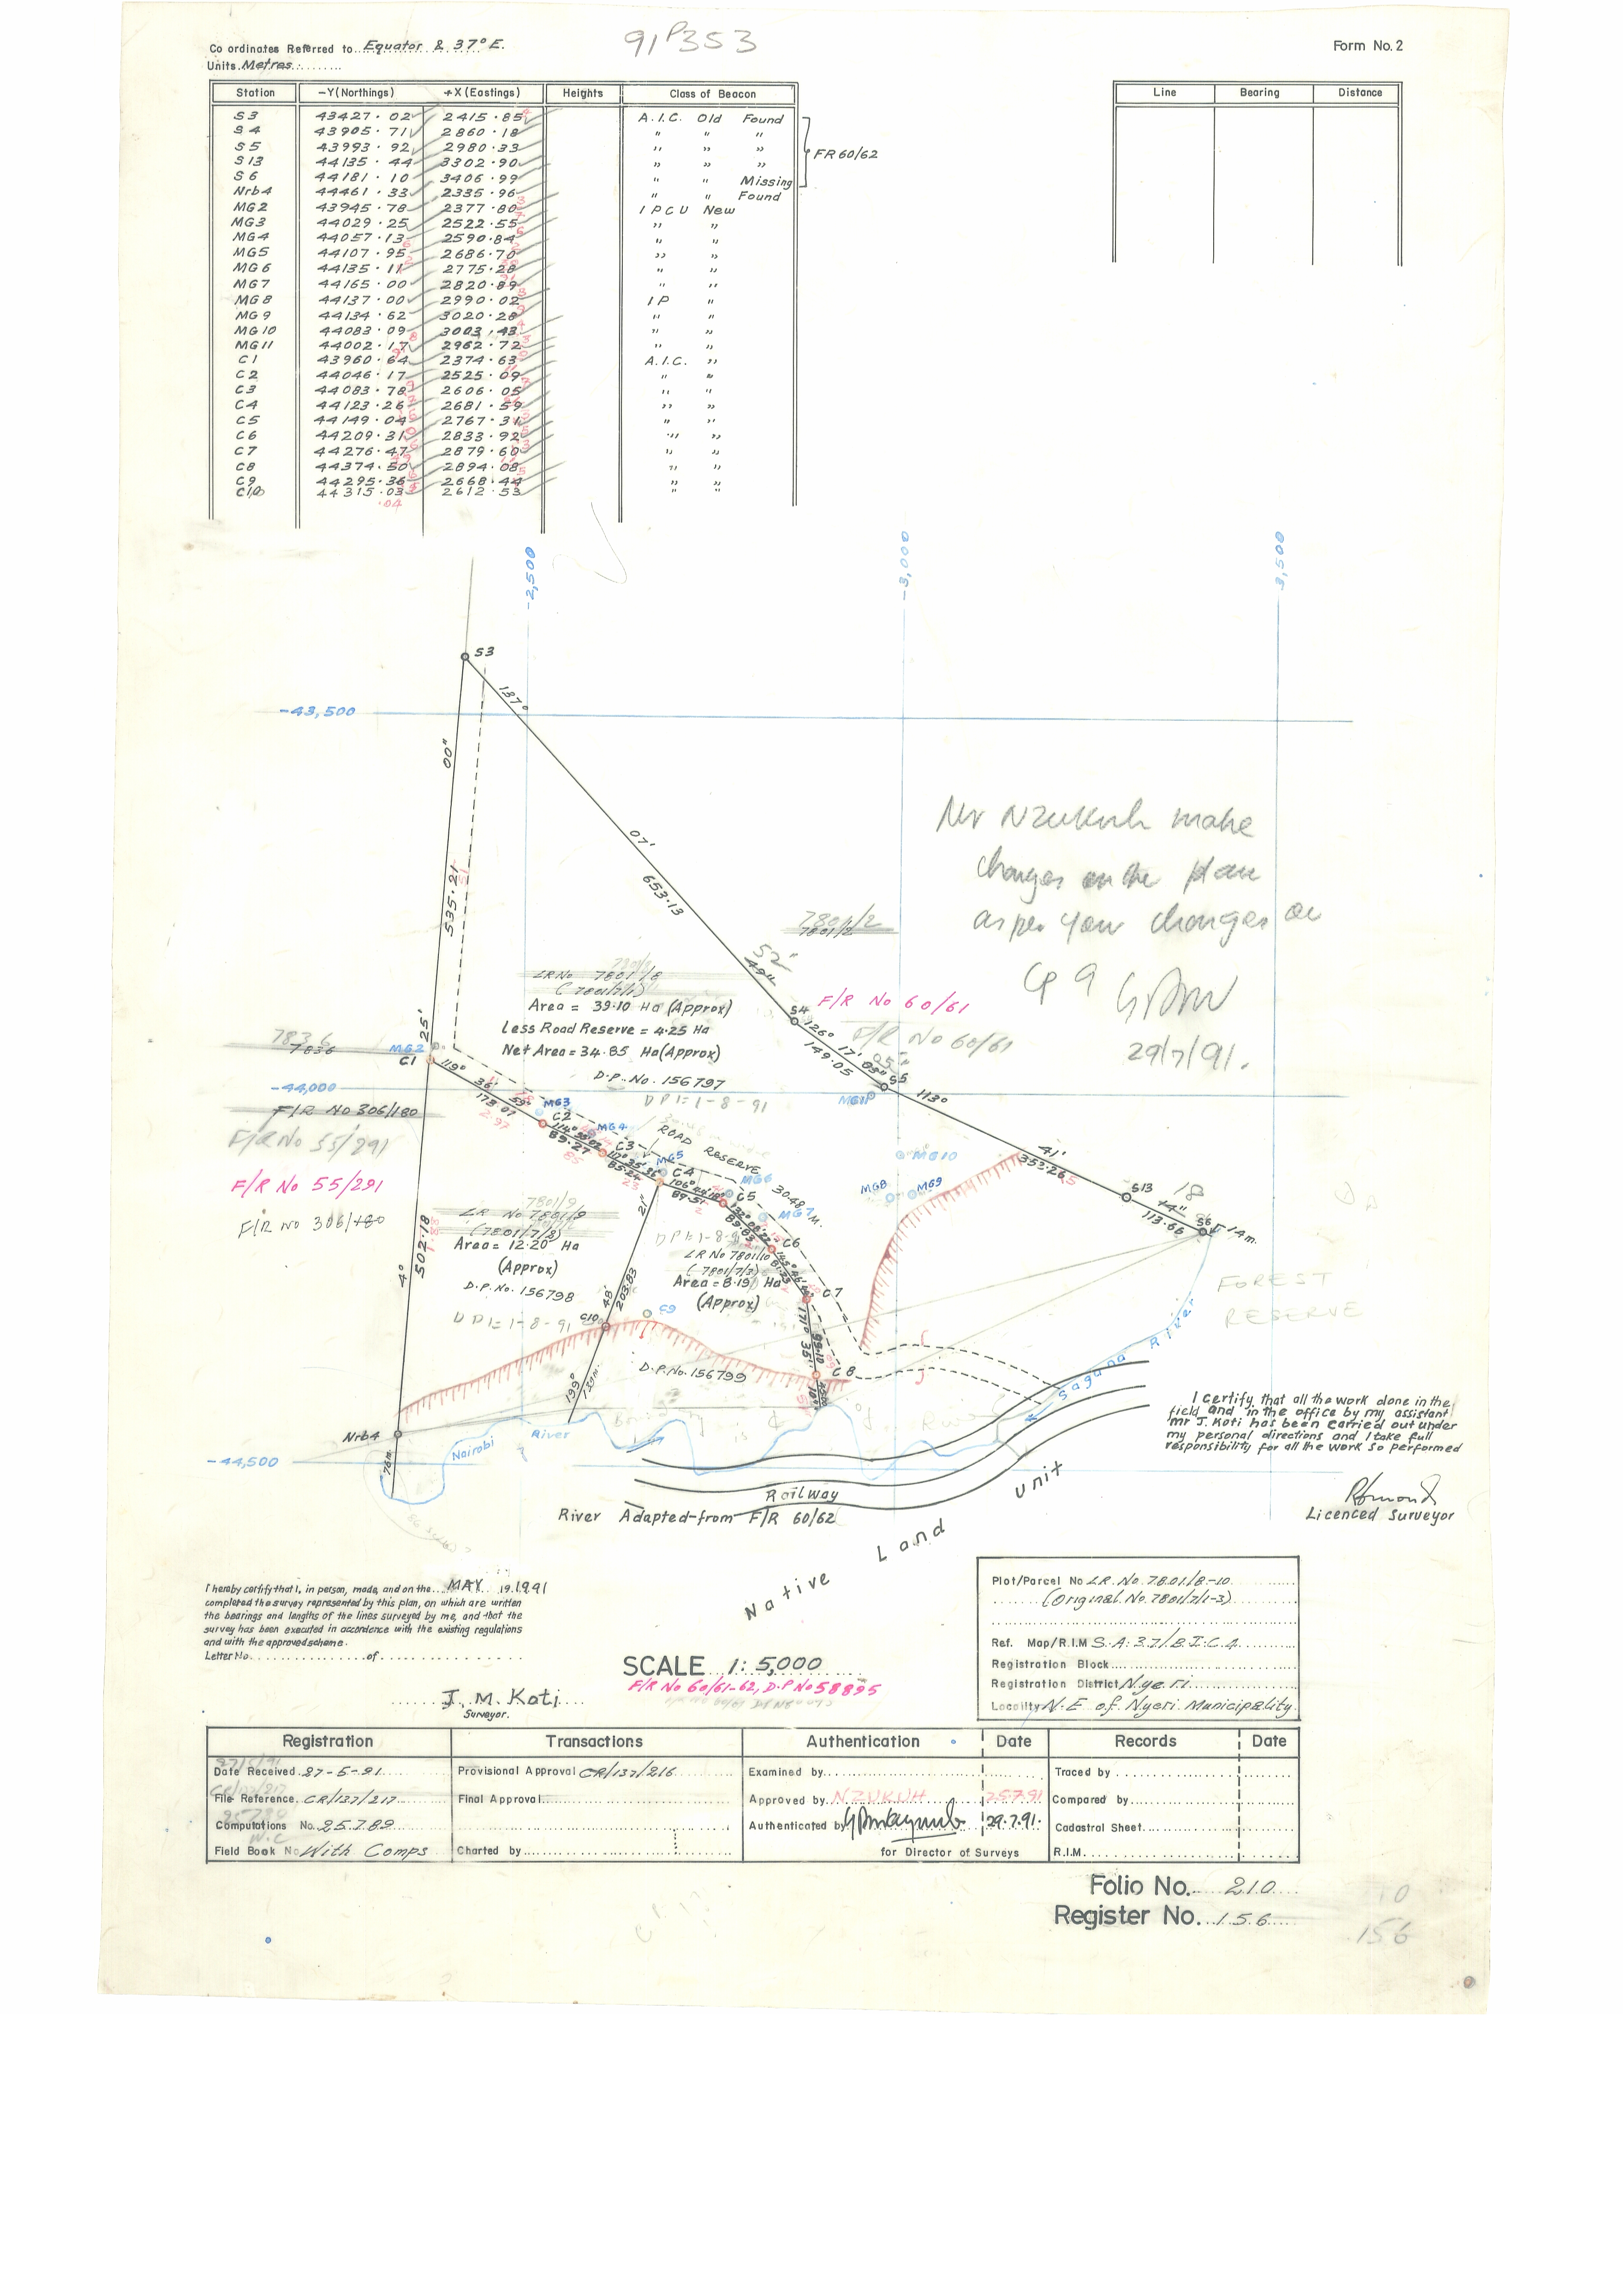 91P353
Co ordinates Referred to Equator & 37° E.
Units Metres
Form No. 2
Station -Y (Northings) +X (Eastings) Heights Class of Beacon
S3 43427.02 2415.85 A.I.C. Old Found
S4 43905.71 2860.18 " " "
S5 43993.92 2980.33 " " "
S13 44135.44 3302.90 " " "
S6 44181.10 3406.99 " " Missing
FR 60/62
Nrb4 44461.33 2335.96 " " Found
MG2 43945.78 2377.80 I P C U New
MG3 44029.25 2522.55 " "
MG4 44057.13 2590.84 " "
MG5 44107.95 2686.70 " "
MG6 44135.11 2775.28 " "
MG7 44165.00 2820.89 " "
MG8 44137.00 2990.02 I P "
MG9 44134.62 3020.28 " "
MG10 44083.09 3003.43 " "
MG11 44002.17 2962.72 " "
C1 43960.64 2374.63 A.I.C. "
C2 44046.17 2525.09 " "
C3 44083.78 2606.05 " "
C4 44123.26 2681.59 " "
C5 44149.04 2767.31 " "
C6 44209.31 2833.92 " "
C7 44276.47 2879.60 " "
C8 44374.50 2894.08 " "
C9 44295.36 2668.44 " "
C10 44315.03 2612.53 " "
.04
Line Bearing Distance
-2,500
-3,000
3,500
S3
137°
-43,500
00"
07'
653.13
535.21
Mr Nzukuh make
changes on the plan
as per your changes on
29/7/91.
7801/2
7801/2
52"
49"
LR No 7801/8
(7801/7/1)
Area = 39.10 Ha (Approx)
Less Road Reserve = 4.25 Ha
Net Area = 34.85 Ha (Approx)
D.P. No. 156797
DP1:-1-8-91
S4
F/R No 60/61
F/R No 60/61
126° 17' 05"
149.05
S5
MG11
113°
41'
353.26
S13
18
44"
113.66
S6
14m.
25'
7836
7836
MG2
C1
119° 36' 59"
173.07
2.97
-44,000
F/R No 306/180
F/R No 55/291
F/R No 55/291
F/R No 306/180
MG3
C2
89.27
MG4
C3
117° 35' 36"
85.24
MG5
C4
ROAD RESERVE
106°
89.51
MG6
C5
30.48 M.
MG7
C6
C7
MG8
MG9
MG10
7801/9
LR No 7801/9
(7801/7/2)
Area = 12.20 Ha
(Approx)
D.P. No. 156798
DP1:-1-8-91
LR No 7801/10
(7801/7/3)
Area = 8.19 Ha
(Approx)
D.P. No. 156799
502.18
4°
21"
48'
203.83
199°
C10
C9
171° 35'
99.10
C8
FOREST
RESERVE
Sagana River
Nrb4
76m
Nairobi River
-44,500
Railway
River Adapted from F/R 60/62
Native Land Unit
I certify that all the work done in the
field and in the office by my assistant
Mr J. Koti has been carried out under
my personal directions and I take full
responsibility for all the work so performed
Licenced Surveyor
I hereby certify that I, in person, made, and on the MAY 19.1991
completed the survey represented by this plan, on which are written
the bearings and lengths of the lines surveyed by me, and that the
survey has been executed in accordance with the existing regulations
and with the approved scheme.
Letter No. of
J. M. Koti
Surveyor.
SCALE 1:5,000
F/R No 60/61-62, D.P No 58895
Plot/Parcel No LR. No. 7801/8-10
(Original No. 7801/7/1-3)
Ref. Map/R.I.M S.A.37/B.I.C.4
Registration Block
Registration District Nyeri
Locality N.E of Nyeri Municipality
Registration Transactions Authentication Date Records Date
Date Received 27-5-91 Provisional Approval CR/137/216 Examined by Traced by
File Reference CR/137/217 Final Approval Approved by NZUKUH 25.7.91 Compared by
Computations No. 25789 Authenticated by 29.7.91. Cadastral Sheet
Field Book No With Comps Charted by for Director of Surveys R.I.M.
Folio No. 210
Register No. 156
156